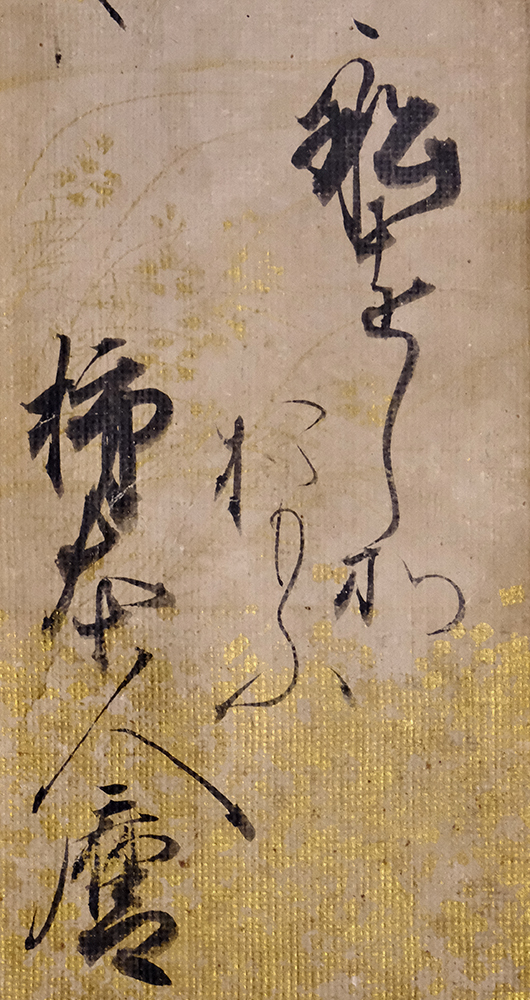 船をしそ
おもふ
柿本人麿